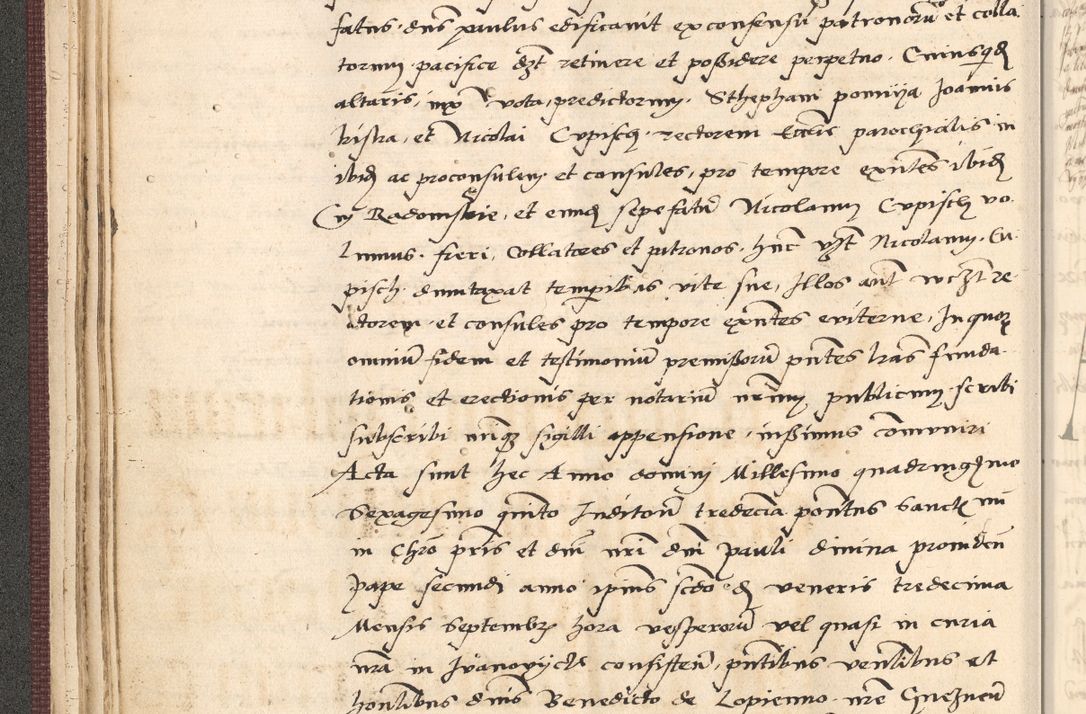 fatus dns paulus edificavit ex consensu patronorũ et colla
torum pacifice dẽt retinere et possidere perpetuo. Cuiusqd
altaris, iux vota predictorum. Sthephani pomiya Joannis
bistra, et Nicolai Cupisch rectorem Eccĩe parochialis in
ibid ac proconsulem et consules, pro tempore exñtes ibid
In Radomskie, et eund sepefatũ Nicolaum Cupisch vo
lumus fieri, Collatores et patronos, hnc Nicolaum Cu
pisch dumtaxat temporibus vite sue, Illos aũt re
ctorem et consules pro tempore exñtes eviterne, In quorꝫ
omniũ fidem et testimoniũ premissorũ pñtes lrãs funda
tionis et erectionis per notariũ nrũm publicum scribi
subscribi nrĩqꝫ sigilli appensione iussimus cõmuniri
Acta sunt hec Anno domini Millesimo quadringẽmo
Sexagesimo quĩto Inditonẽ tredecĩa pontus Sancti mi
in Chrõ pris et dni nrĩ dni Pauli divina providen
pape secundi anno ipius scdo ed veneris tredecima
Mensis Septembrꝫ hora vesperorũ vel quasi in curia
nrã in Jvanovycze consisteñ, pñtibus venlibus et
honlibus dnis Benedicto de Lopienno nrẽ Gnezneñ